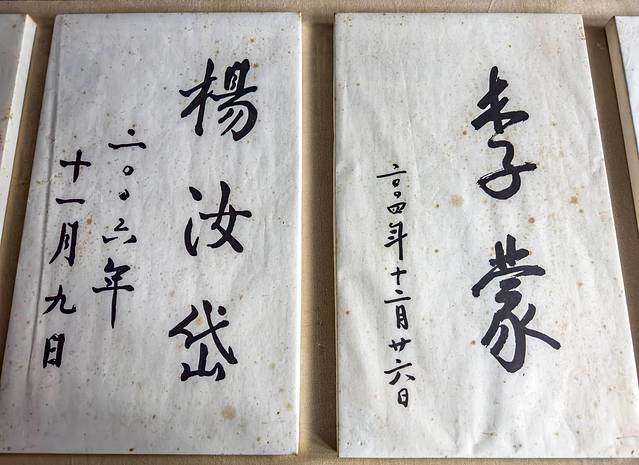 李蒙
二〇〇四年十二月廿六日
楊汝岱
二〇〇六年
十一月九日